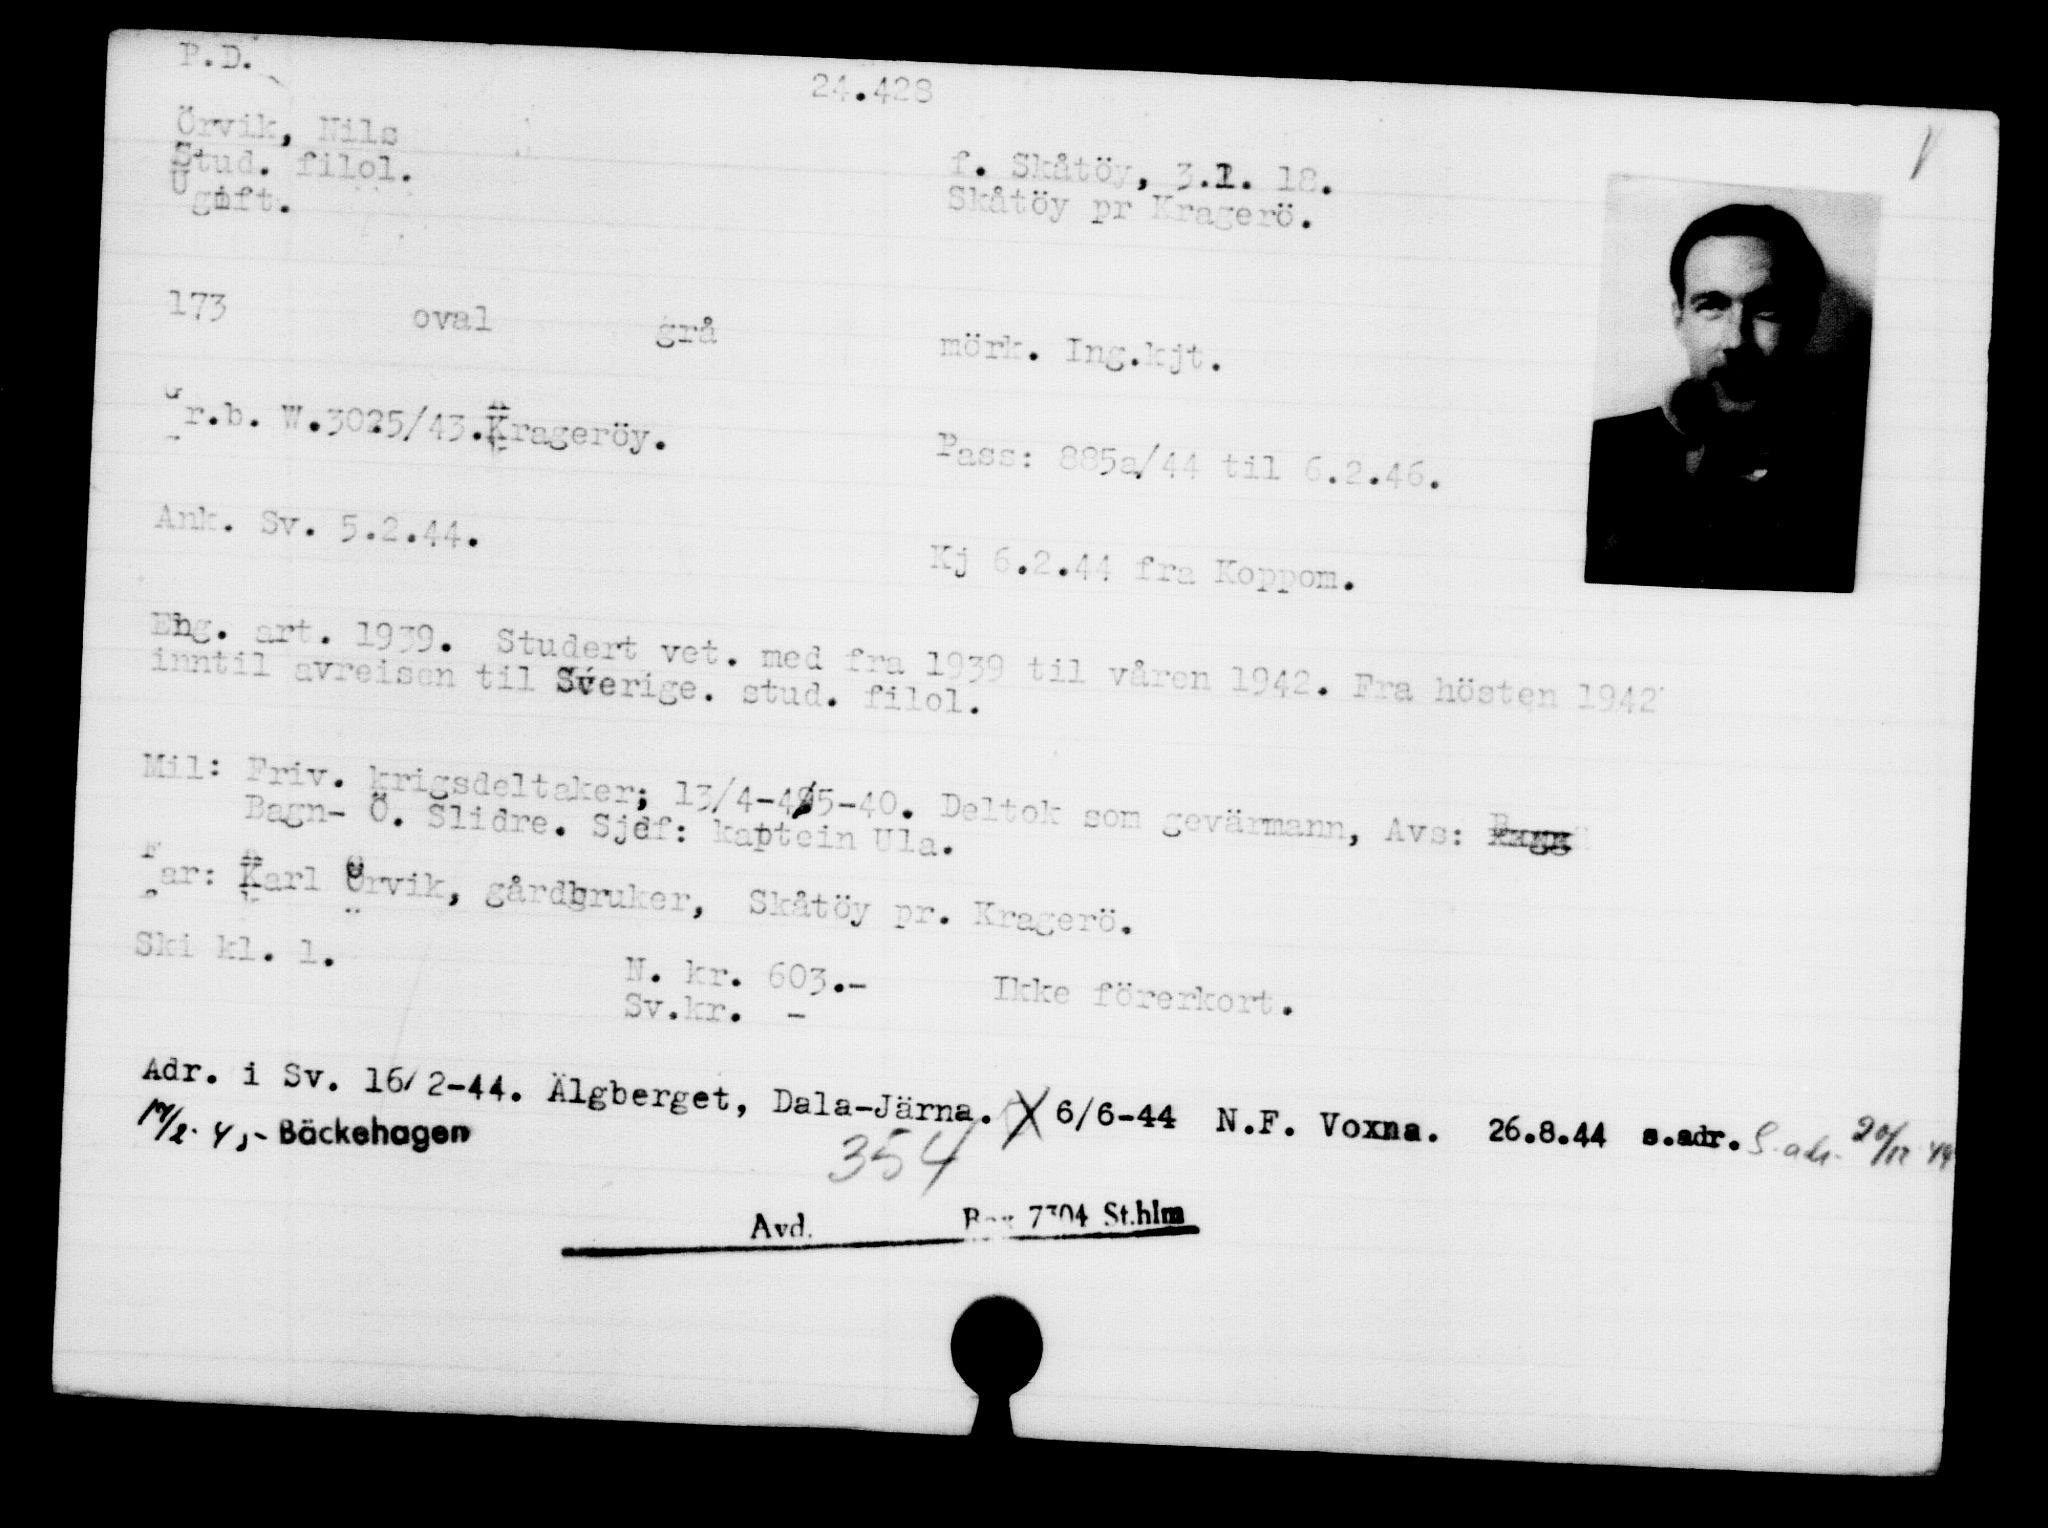 P.D.
24.428
Örvik, Nils
Stud. filol.
Ugift.
f. Skåtöy, 3.1. 18.
Skåtöy pr Kragerö.
173 oval grå mörk. Ing.kjt.
Gr.b. W.3025/43.Krageröy.
Pass: 885a/44 til 6.2.46.
Ank. Sv. 5.2.44.
Kj 6.2.44 fra Koppom.
Eng. art. 1939. Studert vet. med fra 1939 til våren 1942. Fra hösten 1942
inntil avreisen til Sverige. stud. filol.
Mil: Friv. krigsdeltaker; 13/4- 5-40. Deltok som gevärmann, Avs:
Bagn- Ö. Slidre. Sjef: kaptein Ula.
Far: Karl Örvik, gårdbruker, Skåtöy pr. Kragerö.
Ski kl. 1.
N. kr. 603.-
Sv.kr. -
Ikke förerkort.
Adr. i Sv. 16/2-44. Älgberget, Dala-Järna. X 6/6-44 N.F. Voxna. 26.8.44 s.adr. S.adr. 20/12 44
Bäckehagen
354
Avd. Box 7304 St.hlm